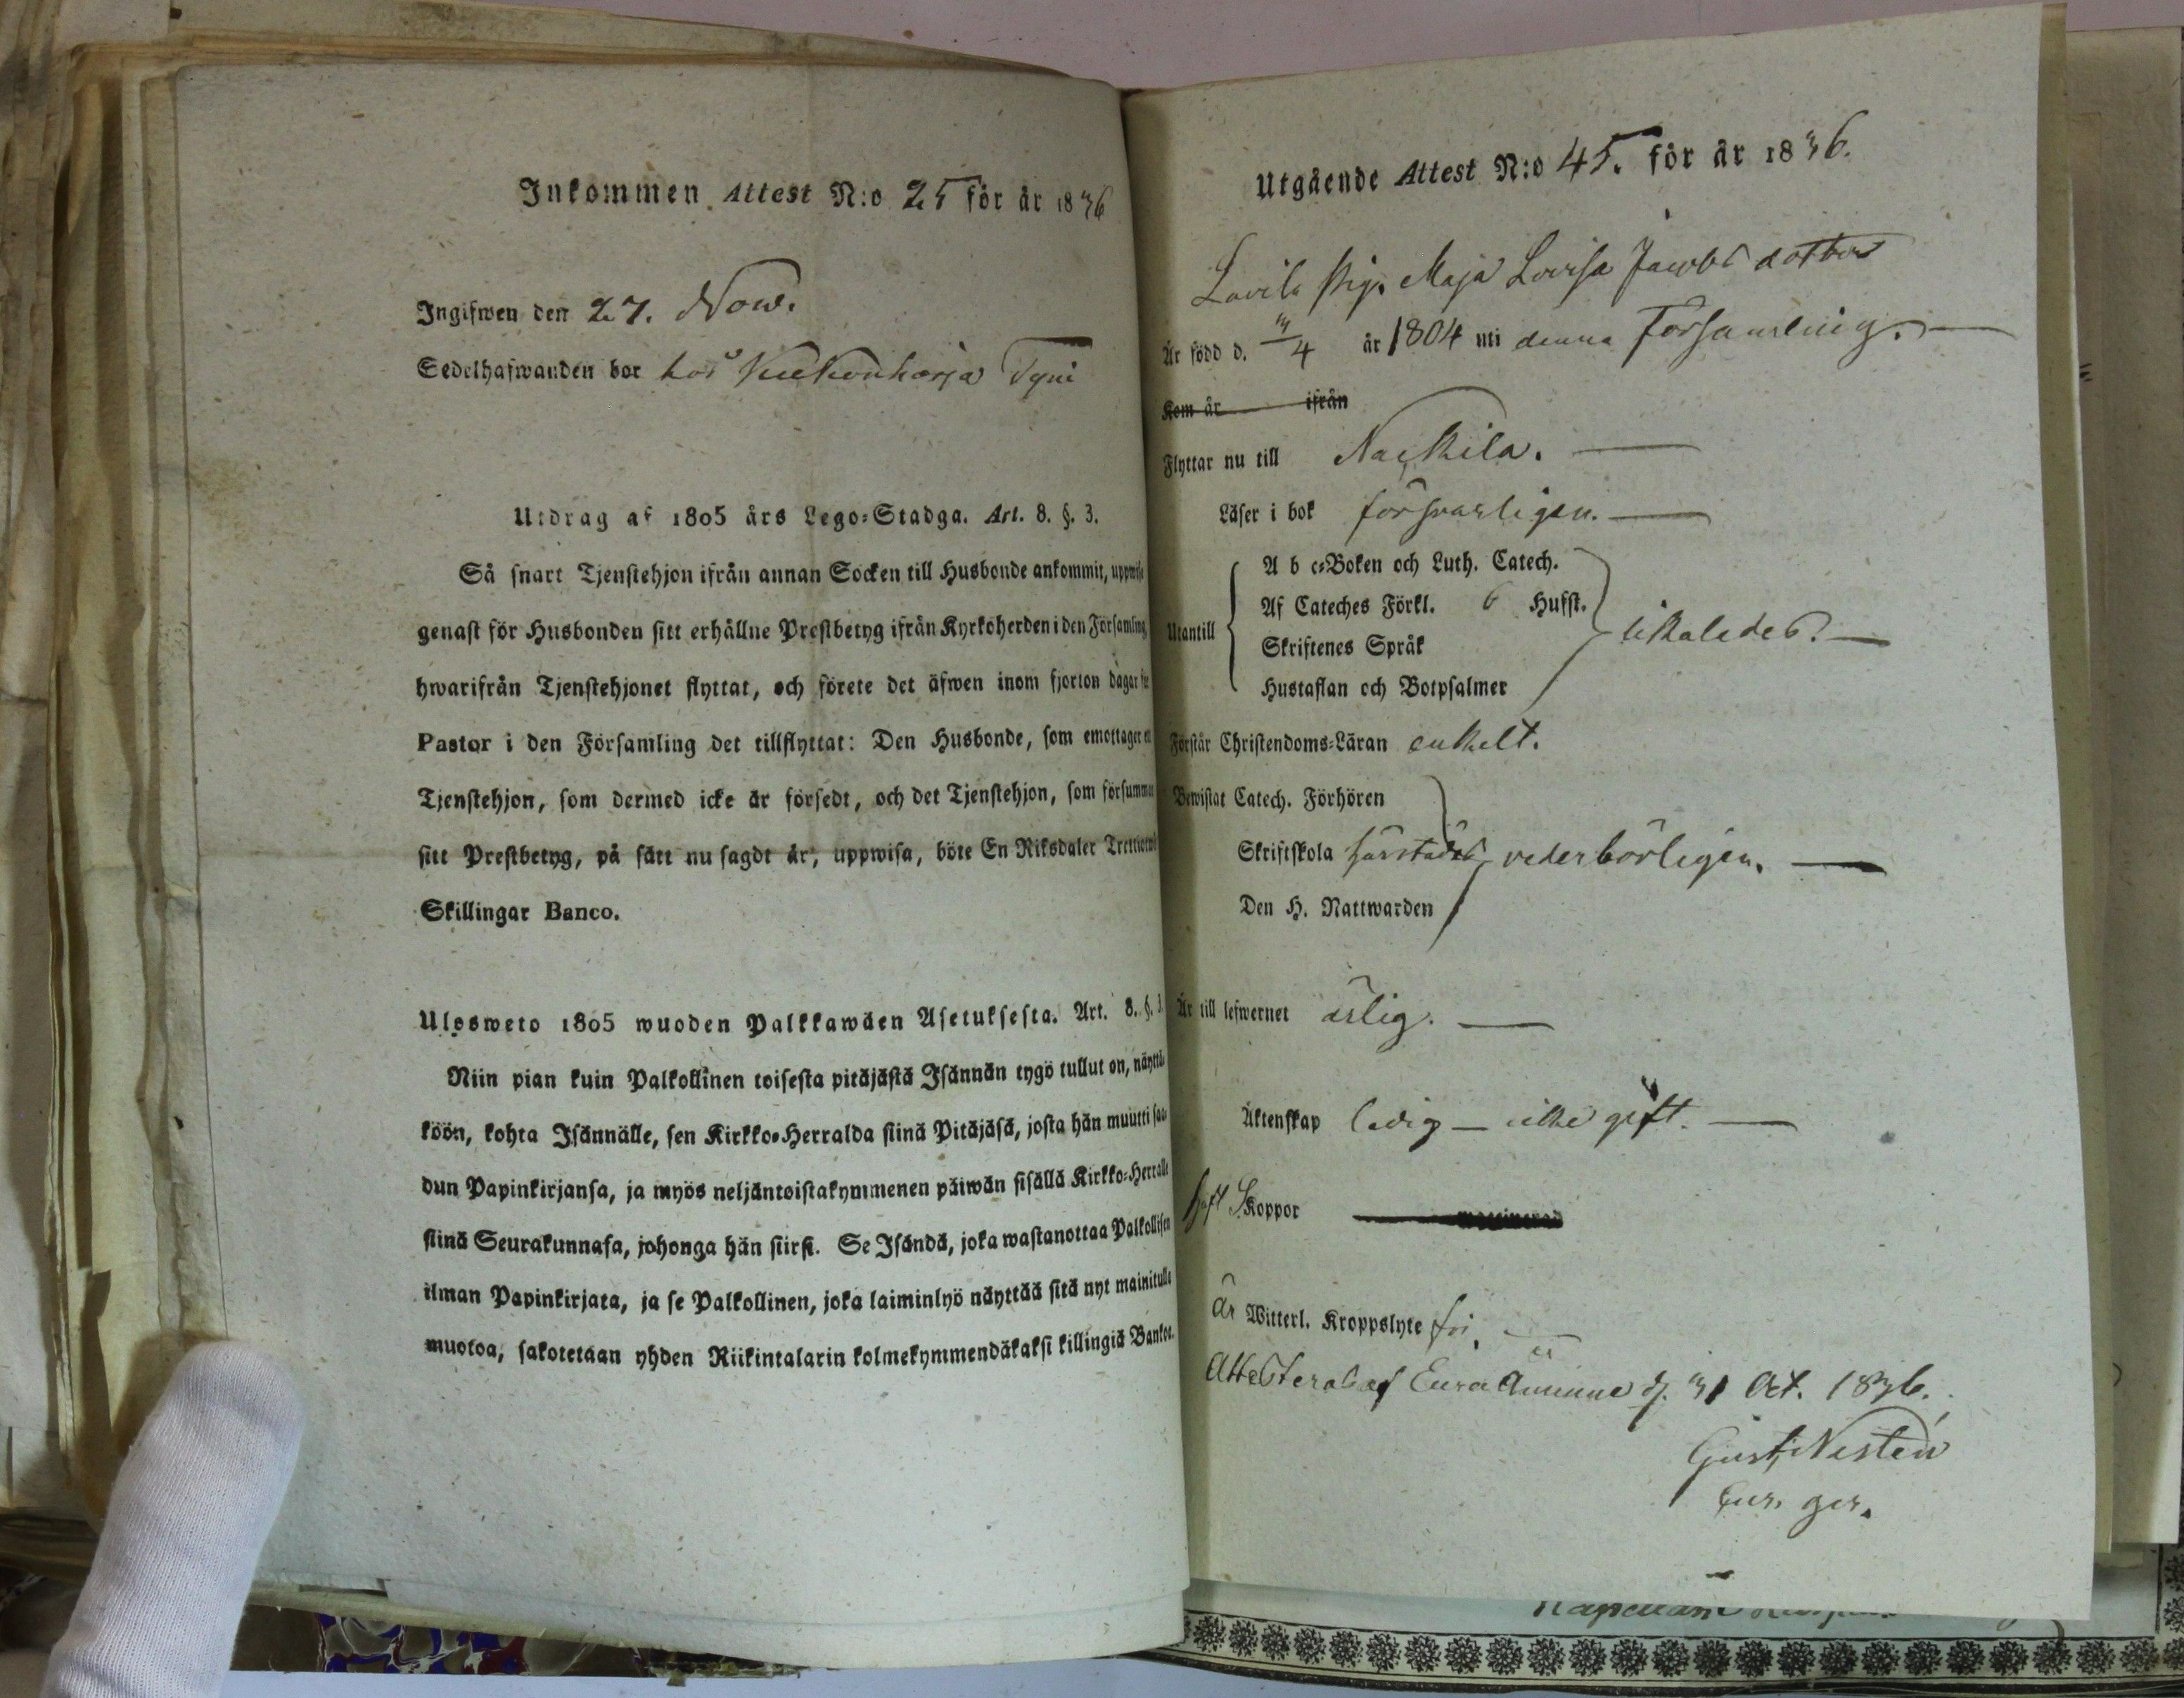 Inkommen Attest N:o 25 för år 1836
Ingifwen den 27. Now.
Sedelhafwanden bor hos Kukonharja Tyni
Utdrag af 1805 års Lego-Stadga. Art. 8. §. 3.
Så snart Tjenstehjon ifrån annan Socken till Husbonde ankommit, uppwise
genast för Husbonden sitt erhållne Prestbetyg ifrån Kyrkoherden i den Församling
hwarifrån Tjenstehjonet flyttat, och förete det äfwen inom fjorton dagar för
Pastor i den Församling det tillflyttat: Den Husbonde, som emottager
Tjenstehjon, som dermed icke är försedt, och det Tjenstehjon, som försummar
sitt Prestbetyg, på sätt nu sagdt är, uppwisa, böte En Riksdaler Trettiotwå
Skillingar Banco.
Ulosweto 1805 wuoden Palkkawäen Asetuksesta. Art. 8. §. 3.
Niin pian kuin Palkollinen toisesta pitäjästä Isännän tygö tullut on, näyttä-
köön, kohta Isännälle, sen Kirkko-Herralda siinä Pitäjäsä, josta hän muutti saa-
dun Papinkirjansa, ja myös neljäntoistakymmenen päiwän sisällä Kirkko-Herralle
siinä Seurakunnasa, johonga hän siirsi. Se Isändä, joka wastanottaa Palkollisen
ilman Papinkirjata, ja se Palkollinen, joka laiminlyö näyttää sitä nyt mainitulle
muotoa, sakotetaan yhden Riikintalarin kolmekymmendäkaksi killingiä Bankoe.
Utgående Attest N:o 45. för år 1836.
Lavila Pig. Maja Lovisa Jacobs dotter
Är född d. 3/4 år 1804 uti denna Församling.
Kom år ifrån
Flyttar nu till Nackila.
Läser i bok försvarligen.
Utantill
A b c-Boken och Luth. Catech.
Af Cateches Förkl. 6 Hufst.
likaledes.
Skriftenes Språk
Hustaflan och Botpsalmer
Förstår Christendoms-Läran enkelt.
Bewistat Catech. Förhören
Skriftskola härstädes vederbörligen.
Den H. Nattwarden
Är till lefwernet ärlig.
Äktenskap ledig – icke gift.
haft Skoppor
är Witterl. Kroppslyte fri.
Attesteras af Euraåminne d. 31 Oct. 1836.
Gust. Nestén